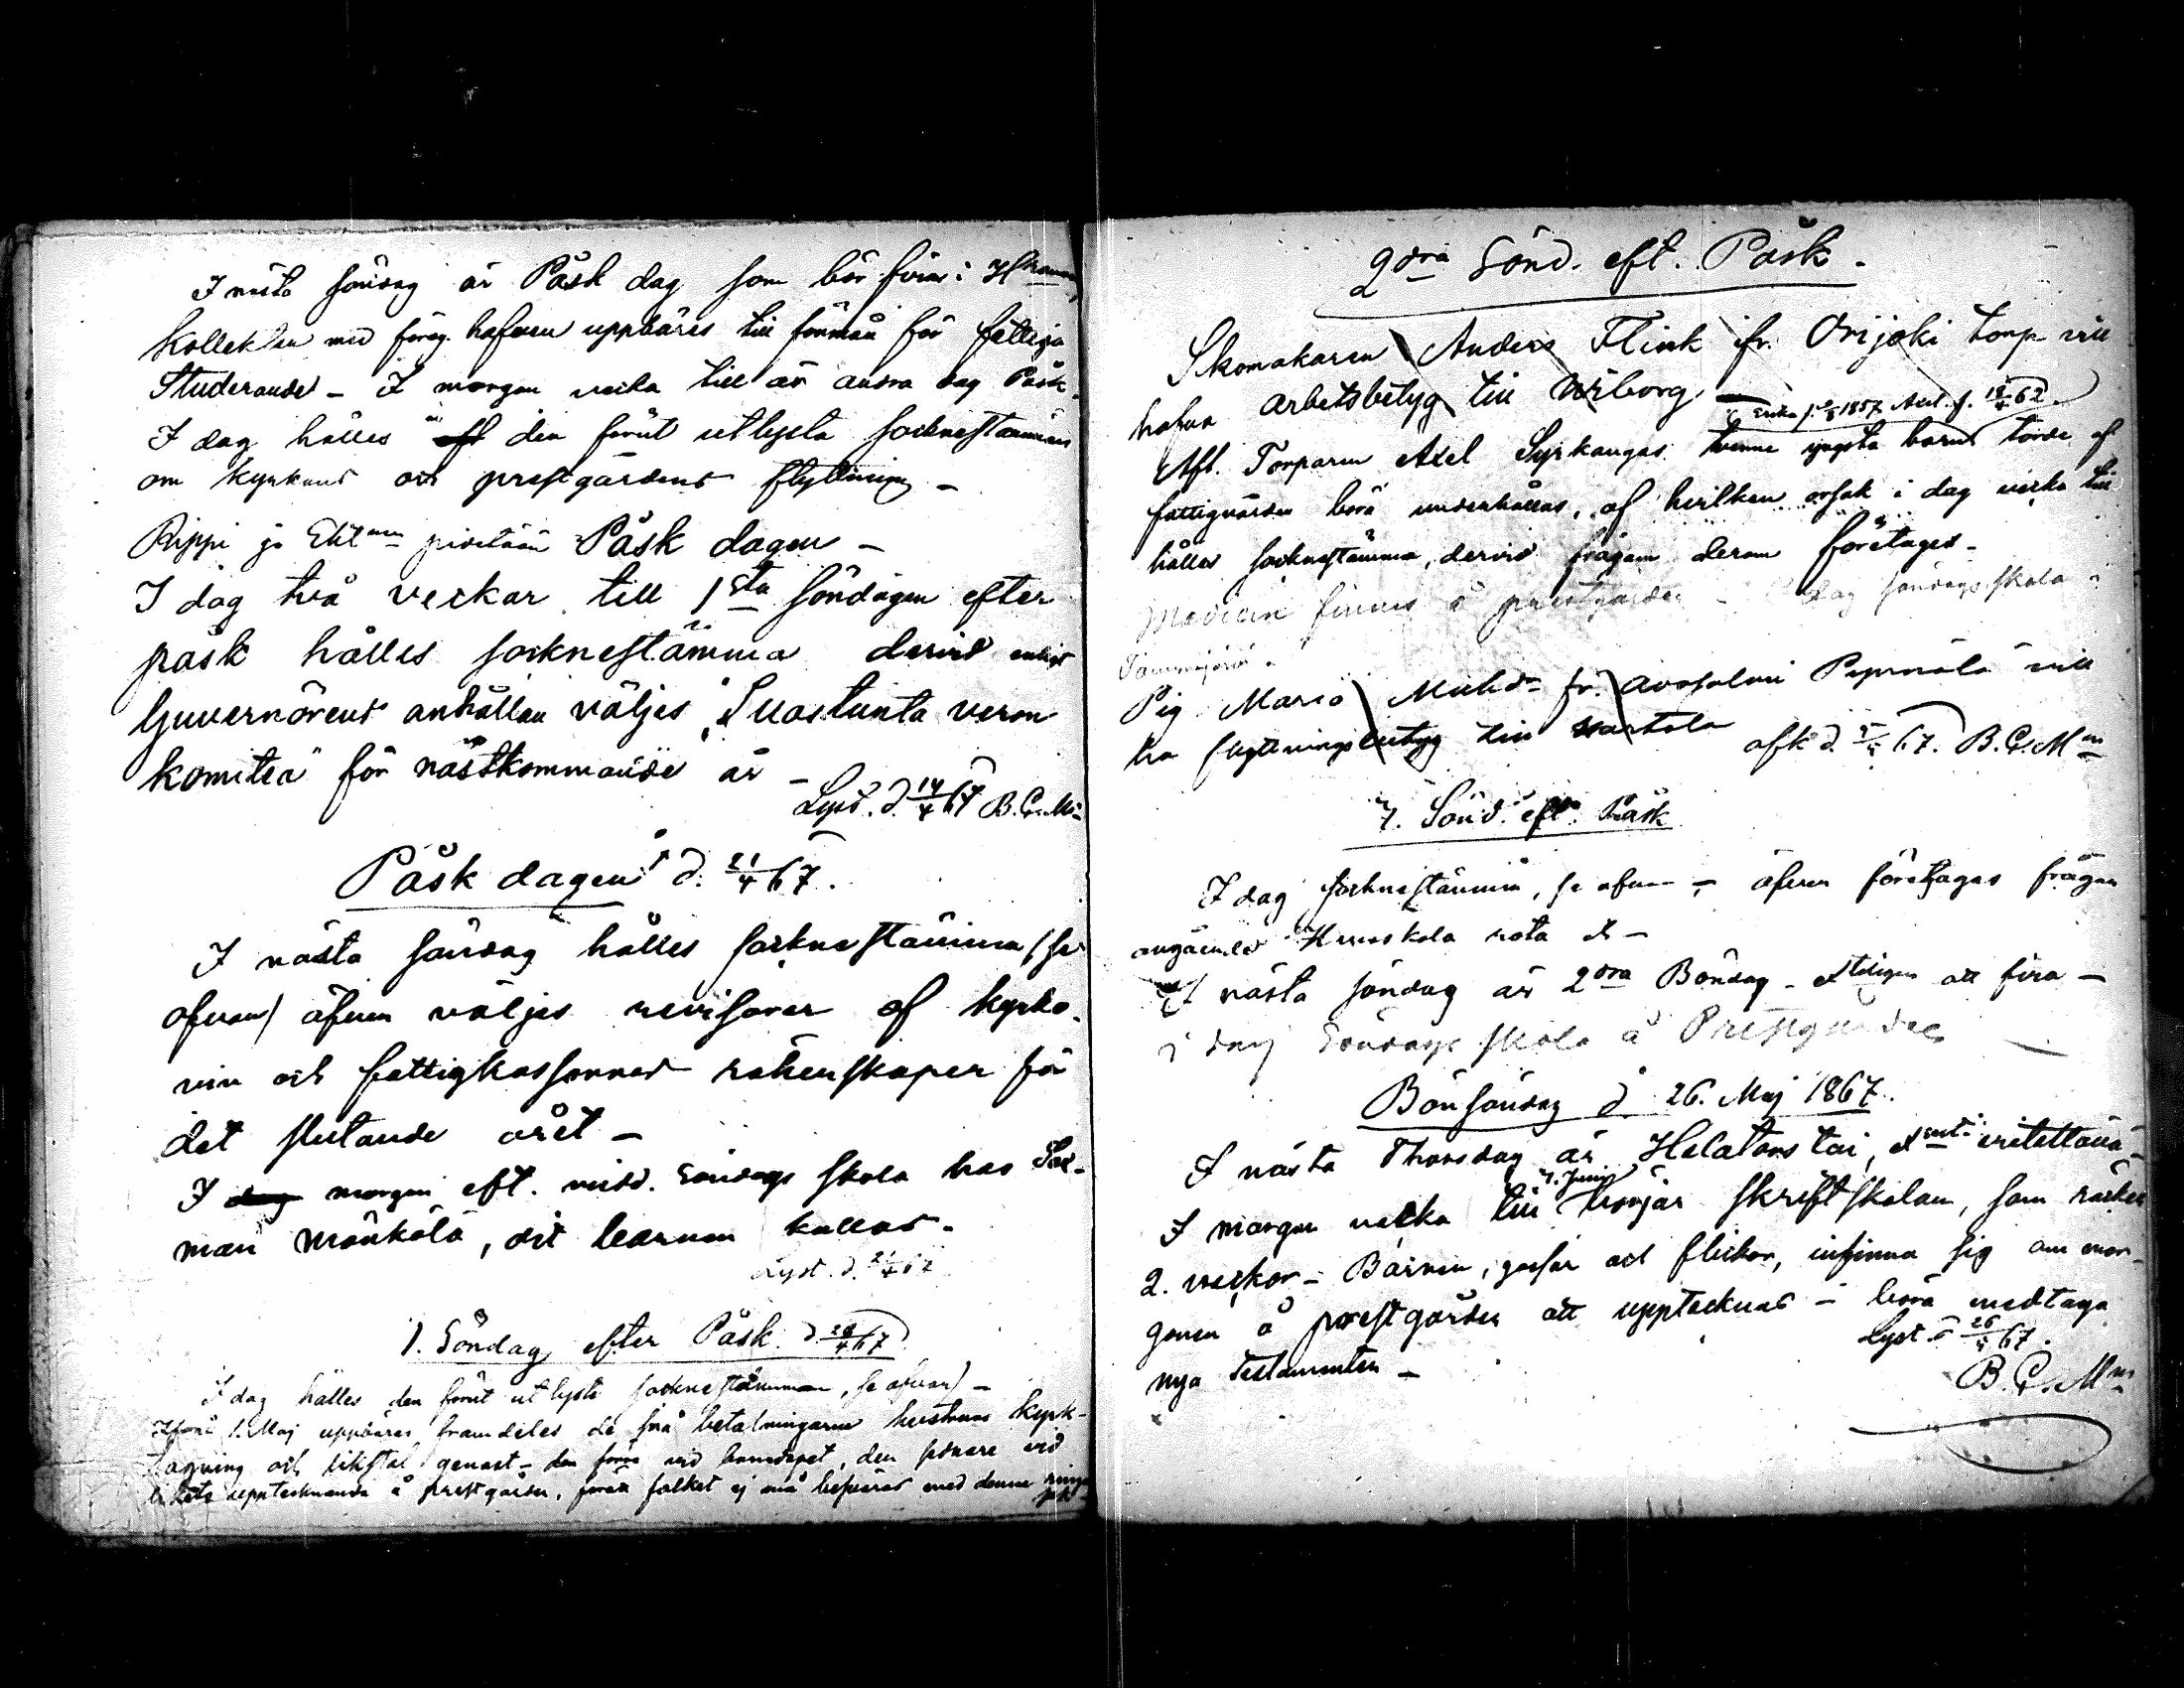 I nästa söndag är Påsk dag som bör firas i
Kollekten med föreg. hafven uppbäres till förmån för fattiga
Studerande - I morgon vecka till är andra dag Påsk.
I dag hålles den förut utlysta socknestämman
om kyrkans och prestgårdens flyttning -
Rippi ja Eht pidetään Påsk dagen -
I dag två veckor till 1sta söndagen efter
påsk hålles socknestämma dervid enligt
Guvernörens anhållan väljes "Suostunta veron
komitea" för nästkommande år -
Lyst. d. 14/4 67 B.G.Mn
Påsk dagen d. 21/4 67.
I nästa söndag hålles sockne stämma (se
ofvan) äfven väljes revisorer af kyrko-
vin och fattigkassornas räkenskaper för
det slutande året -
I dag morgon eft. midd. Söndags skola hos
man Mönkölä, dit barnen kallas.
Lyst. d. 21/4 67
1. Söndag efter Påsk d 28/4 67
I dag hålles den förut utlysta socknestämman, se ofvan) -
1. Maj uppbäres framdeles de små betalningarne hustrurs kyrk-
tagning och likstol genast - den förra vid barndopet, den senare vid
likets upptecknande å prestgården, folket ej må besväras med denna
2dra Sönd. eft. Påsk.
Skomakaren Anders Flink fr. Orijoki torp vill
hafva arbetsbetyg till Wiborg
Erika f. 1857 Axel f. 18/4 62.
Afl. Torparen Axel Syrkangas tvenne yngsta barns torde af
fattigvården böra underhållas, af hvilken orsak i dag vecka till
hålles socknestämma, dervid frågan derom företages -
Medicin finnes å prestgården - I dag söndagsskola i
Pig. Maria Mickdr fr. Avosalmi Pyrnälä vill
ha flyttningsbetyg till Wartola afk d. 5/5 67. B.G.Mn
4. Sönd. eft. Påsk
I dag socknestämma, se ofvan - äfven företages frågan
angående skola rota d -
I nästa söndag är 2dra Böndag - att fira -
i dag Söndags skola å Prestgården
Bönsöndag d 26. Maj 1867.
I nästa Thorsdag är Helatorstai,
4. Juni
I morgon vecka till börjar skriftskolan, som räcker
2. veckor - Barnen, gossar och flickor, infinna sig om mor-
gonen å prestgården att upptecknas - böra medtaga
nya Testamenten -
Lyst d 26/5 67.
B.G.Mn